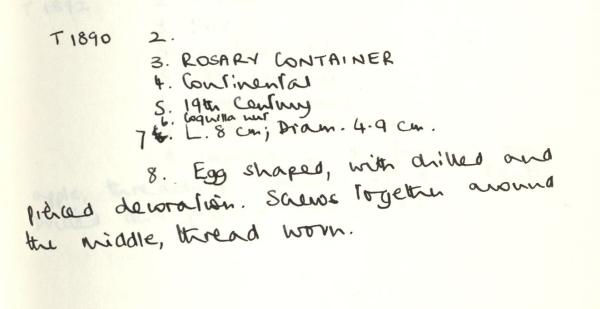 T 1890 2.
3. ROSARY CONTAINER
4. Continental
5. 19th Century
6. Coquilla nut
7. L. 8 cm; Diam. 4.9 cm.
8. Egg shaped, with drilled and
pierced decoration. Screws together around
the middle, thread worn.